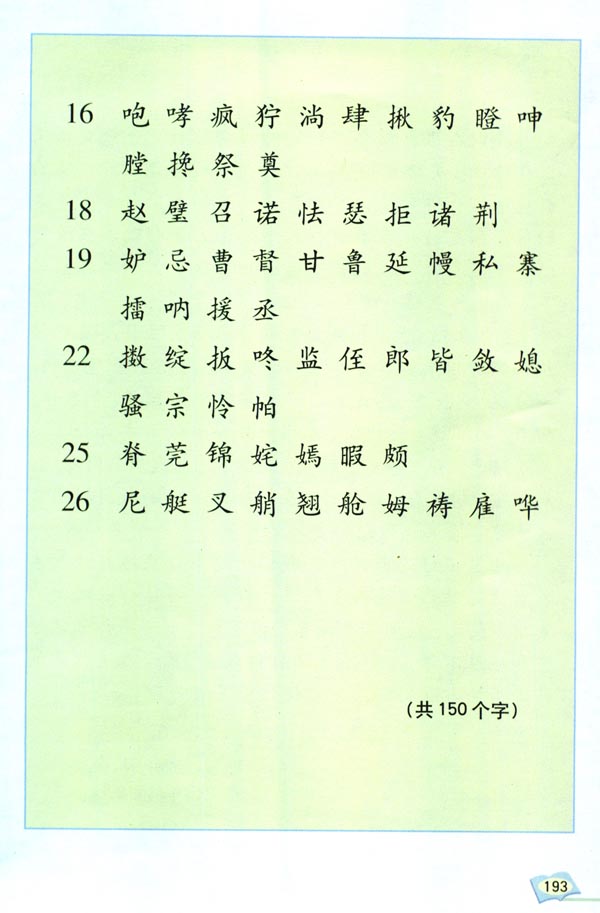 16 咆 哮 疯 狞 淌 肆 揪 豹 瞪 呻
膛 搀 祭 奠
18 赵 璧 召 诺 怯 瑟 拒 诸 荆
19 妒 忌 曹 督 甘 鲁 延 幔 私 寨
擂 呐 援 丞
22 擞 绽 扳 咚 监 侄 郎 皆 敛 媳
骚 宗 怜 帕
25 脊 莞 锦 姹 嫣 暇 颇
26 尼 艇 叉 艄 翘 舱 姆 祷 雇 哗
（共150个字）
193